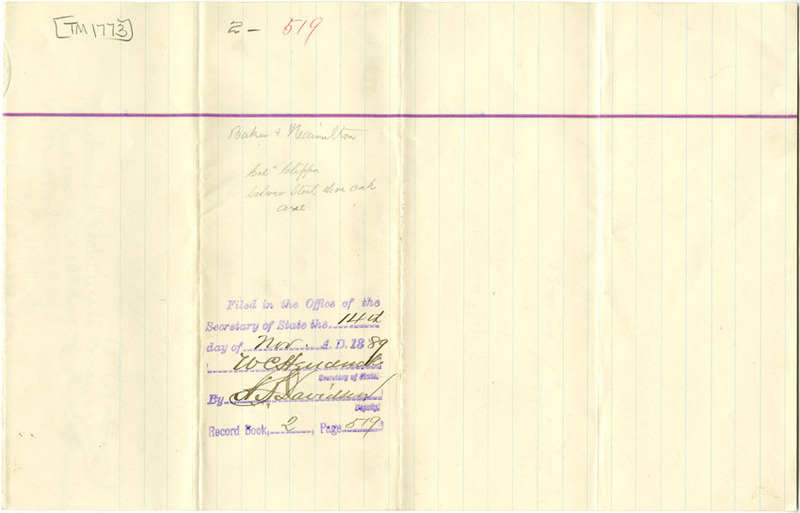 [TM 1773]
2 - 519
Baker & Hamilton
Silver Steel Live Oak
axe
Filed in the Office of the
Secretary of State the 14th
day of Nov. A. D. 1889
W C Hendricks
Secretary of State.
By Davidson
Deputy.
Record Book, 2, Page 519